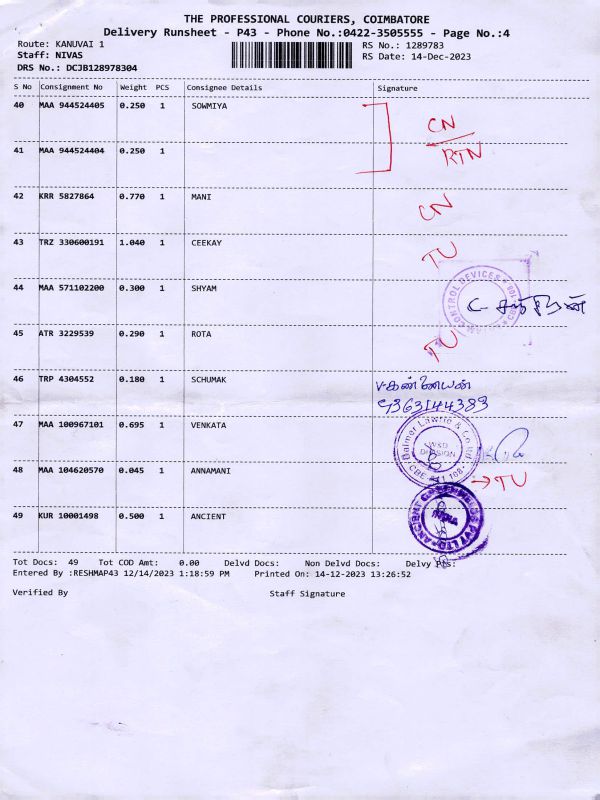 THE PROFESSIONAL COURIERS, COIMBATORE
Delivery Runsheet - P43 - Phone No.:0422-3505555 - Page No.:4
Route: KANUVAI 1 RS No.: 1289783
Staff: NIVAS RS Date: 14-Dec-2023
DRS No.: DCJB128978304
S No Consignment No Weight PCS Consignee Details Signature
40 MAA 944524405 0.250 1 SOWMIYA
CN
41 MAA 944524404 0.250 1
RTN
42 KRR 5827864 0.770 1 MANI CN
43 TRZ 330600191 1.040 1 CEEKAY TU
44 MAA 571102200 0.300 1 SHYAM
CONTROL DEVICES
45 ATR 3229539 0.290 1 ROTA TU
46 TRP 4304552 0.180 1 SCHUMAK
9363144383
47 MAA 100967101 0.695 1 VENKATA
Balmer Lawrie & Co Ltd
W&D
DIVISION
48 MAA 104620570 0.045 1 ANNAMANI → TU
49 KUR 10001498 0.500 1 ANCIENT
ANCIENT PVT LTD
INDIA
Tot Docs: 49 Tot COD Amt: 0.00 Delvd Docs: Non Delvd Docs: Delvy Pts:
Entered By :RESHMAP43 12/14/2023 1:18:59 PM Printed On: 14-12-2023 13:26:52
Verified By Staff Signature